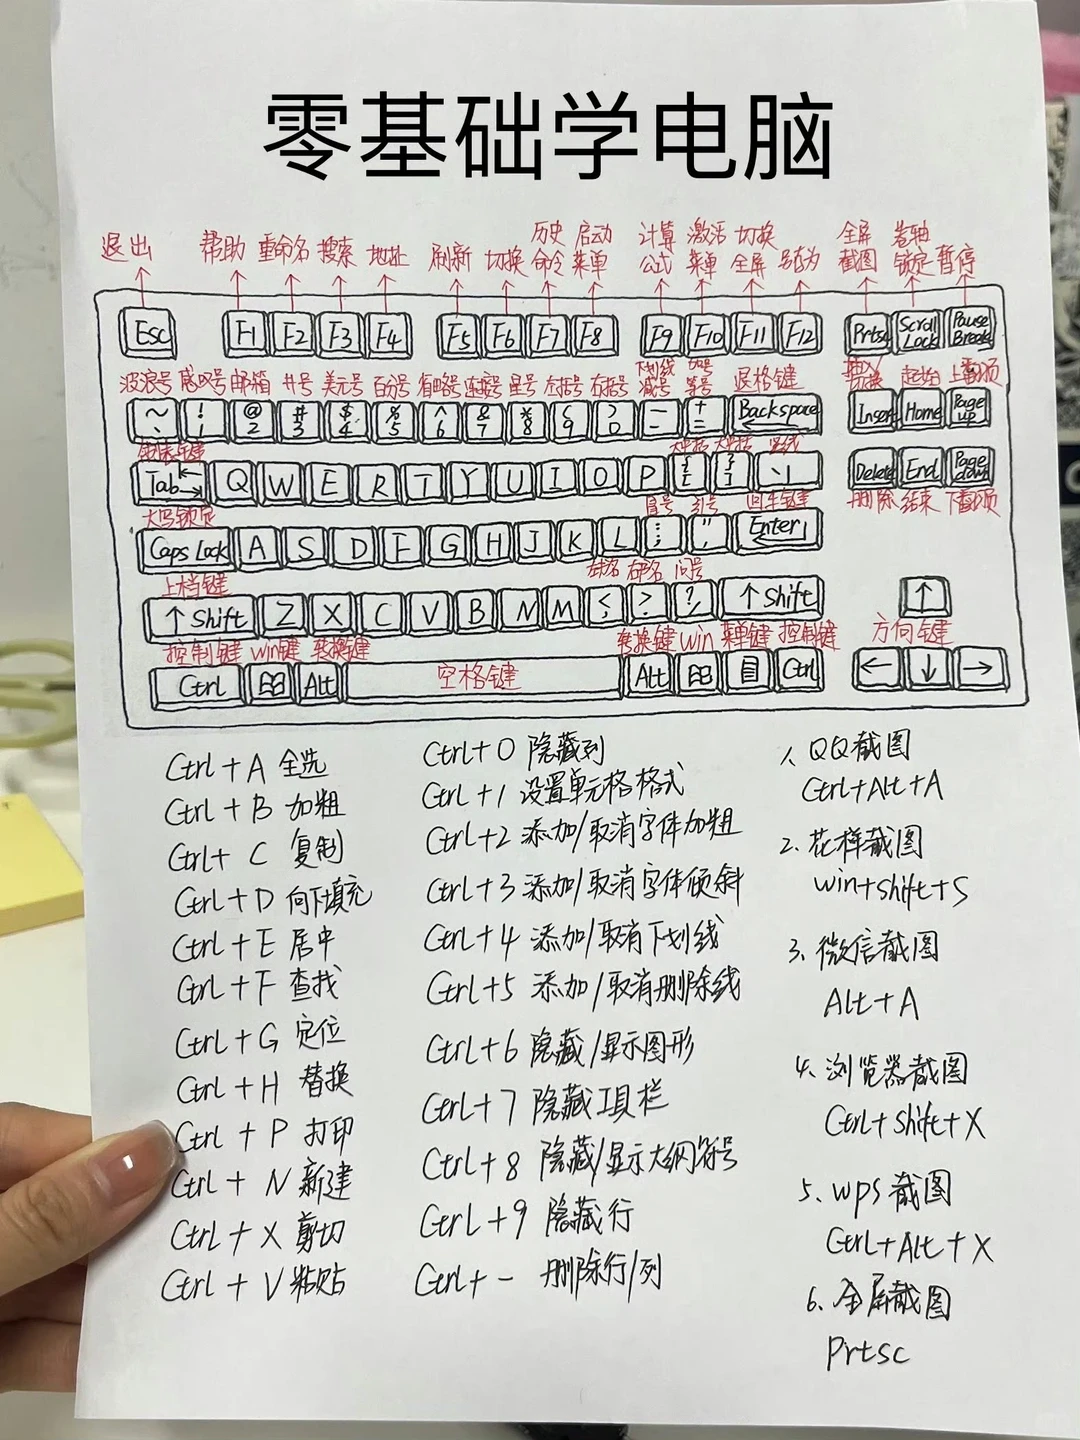 零基础学电脑
历史 启动 计算 激活 切换 全屏 卷轴
退出 帮助 重命名 搜索 地址 刷新 切换 命令 菜单 公式 菜单 全屏 另存为 截图 锁定 暂停
Esc F1 F2 F3 F4 F5 F6 F7 F8 F9 F10 F11 F12 Prtsc Scroll Lock Pause Break
下划线 加号
波浪号 感叹号 邮箱 井号 美元号 百分号 省略号 连接号 星号 左括号 右括号 减号 等号 退格键 插入 切换 起始 上翻页
~ ` ! 1 @ 2 # 3 $ 4 % 5 ^ 6 & 7 * 8 ( 9 ) 0 — - + = Backspace Insert Home Page up
制表键
Tab Q W E R T Y U I O P { [ } ] \ | Delete End Page down
大写锁定 冒号 引号 回车键 删除 结束 下翻页
Caps Lock A S D F G H J K L : ; " ' Enter
上档键 问号
↑ Shift Z X C V B N M < , > . ? / ↑ Shift ↑
控制键 win键 转换键 转换键 win 菜单键 控制键 方向键
Ctrl Alt 空格键 Alt Ctrl ← ↓ →
Ctrl + A 全选
Ctrl + B 加粗
Ctrl + C 复制
Ctrl + D 向下填充
Ctrl + E 居中
Ctrl + F 查找
Ctrl + G 定位
Ctrl + H 替换
Ctrl + P 打印
Ctrl + N 新建
Ctrl + X 剪切
Ctrl + V 粘贴
Ctrl + 0 隐藏列
Ctrl + 1 设置单元格格式
Ctrl + 2 添加/取消字体加粗
Ctrl + 3 添加/取消字体倾斜
Ctrl + 4 添加/取消下划线
Ctrl + 5 添加/取消删除线
Ctrl + 6 隐藏/显示图形
Ctrl + 7 隐藏工具栏
Ctrl + 8 隐藏/显示大纲符号
Ctrl + 9 隐藏行
Ctrl + - 删除行/列
1、QQ截图
Ctrl+Alt+A
2、花样截图
win+shift+S
3、微信截图
Alt+A
4、浏览器截图
Ctrl+shift+X
5、wps截图
Ctrl+Alt+X
6、全屏截图
Prtsc